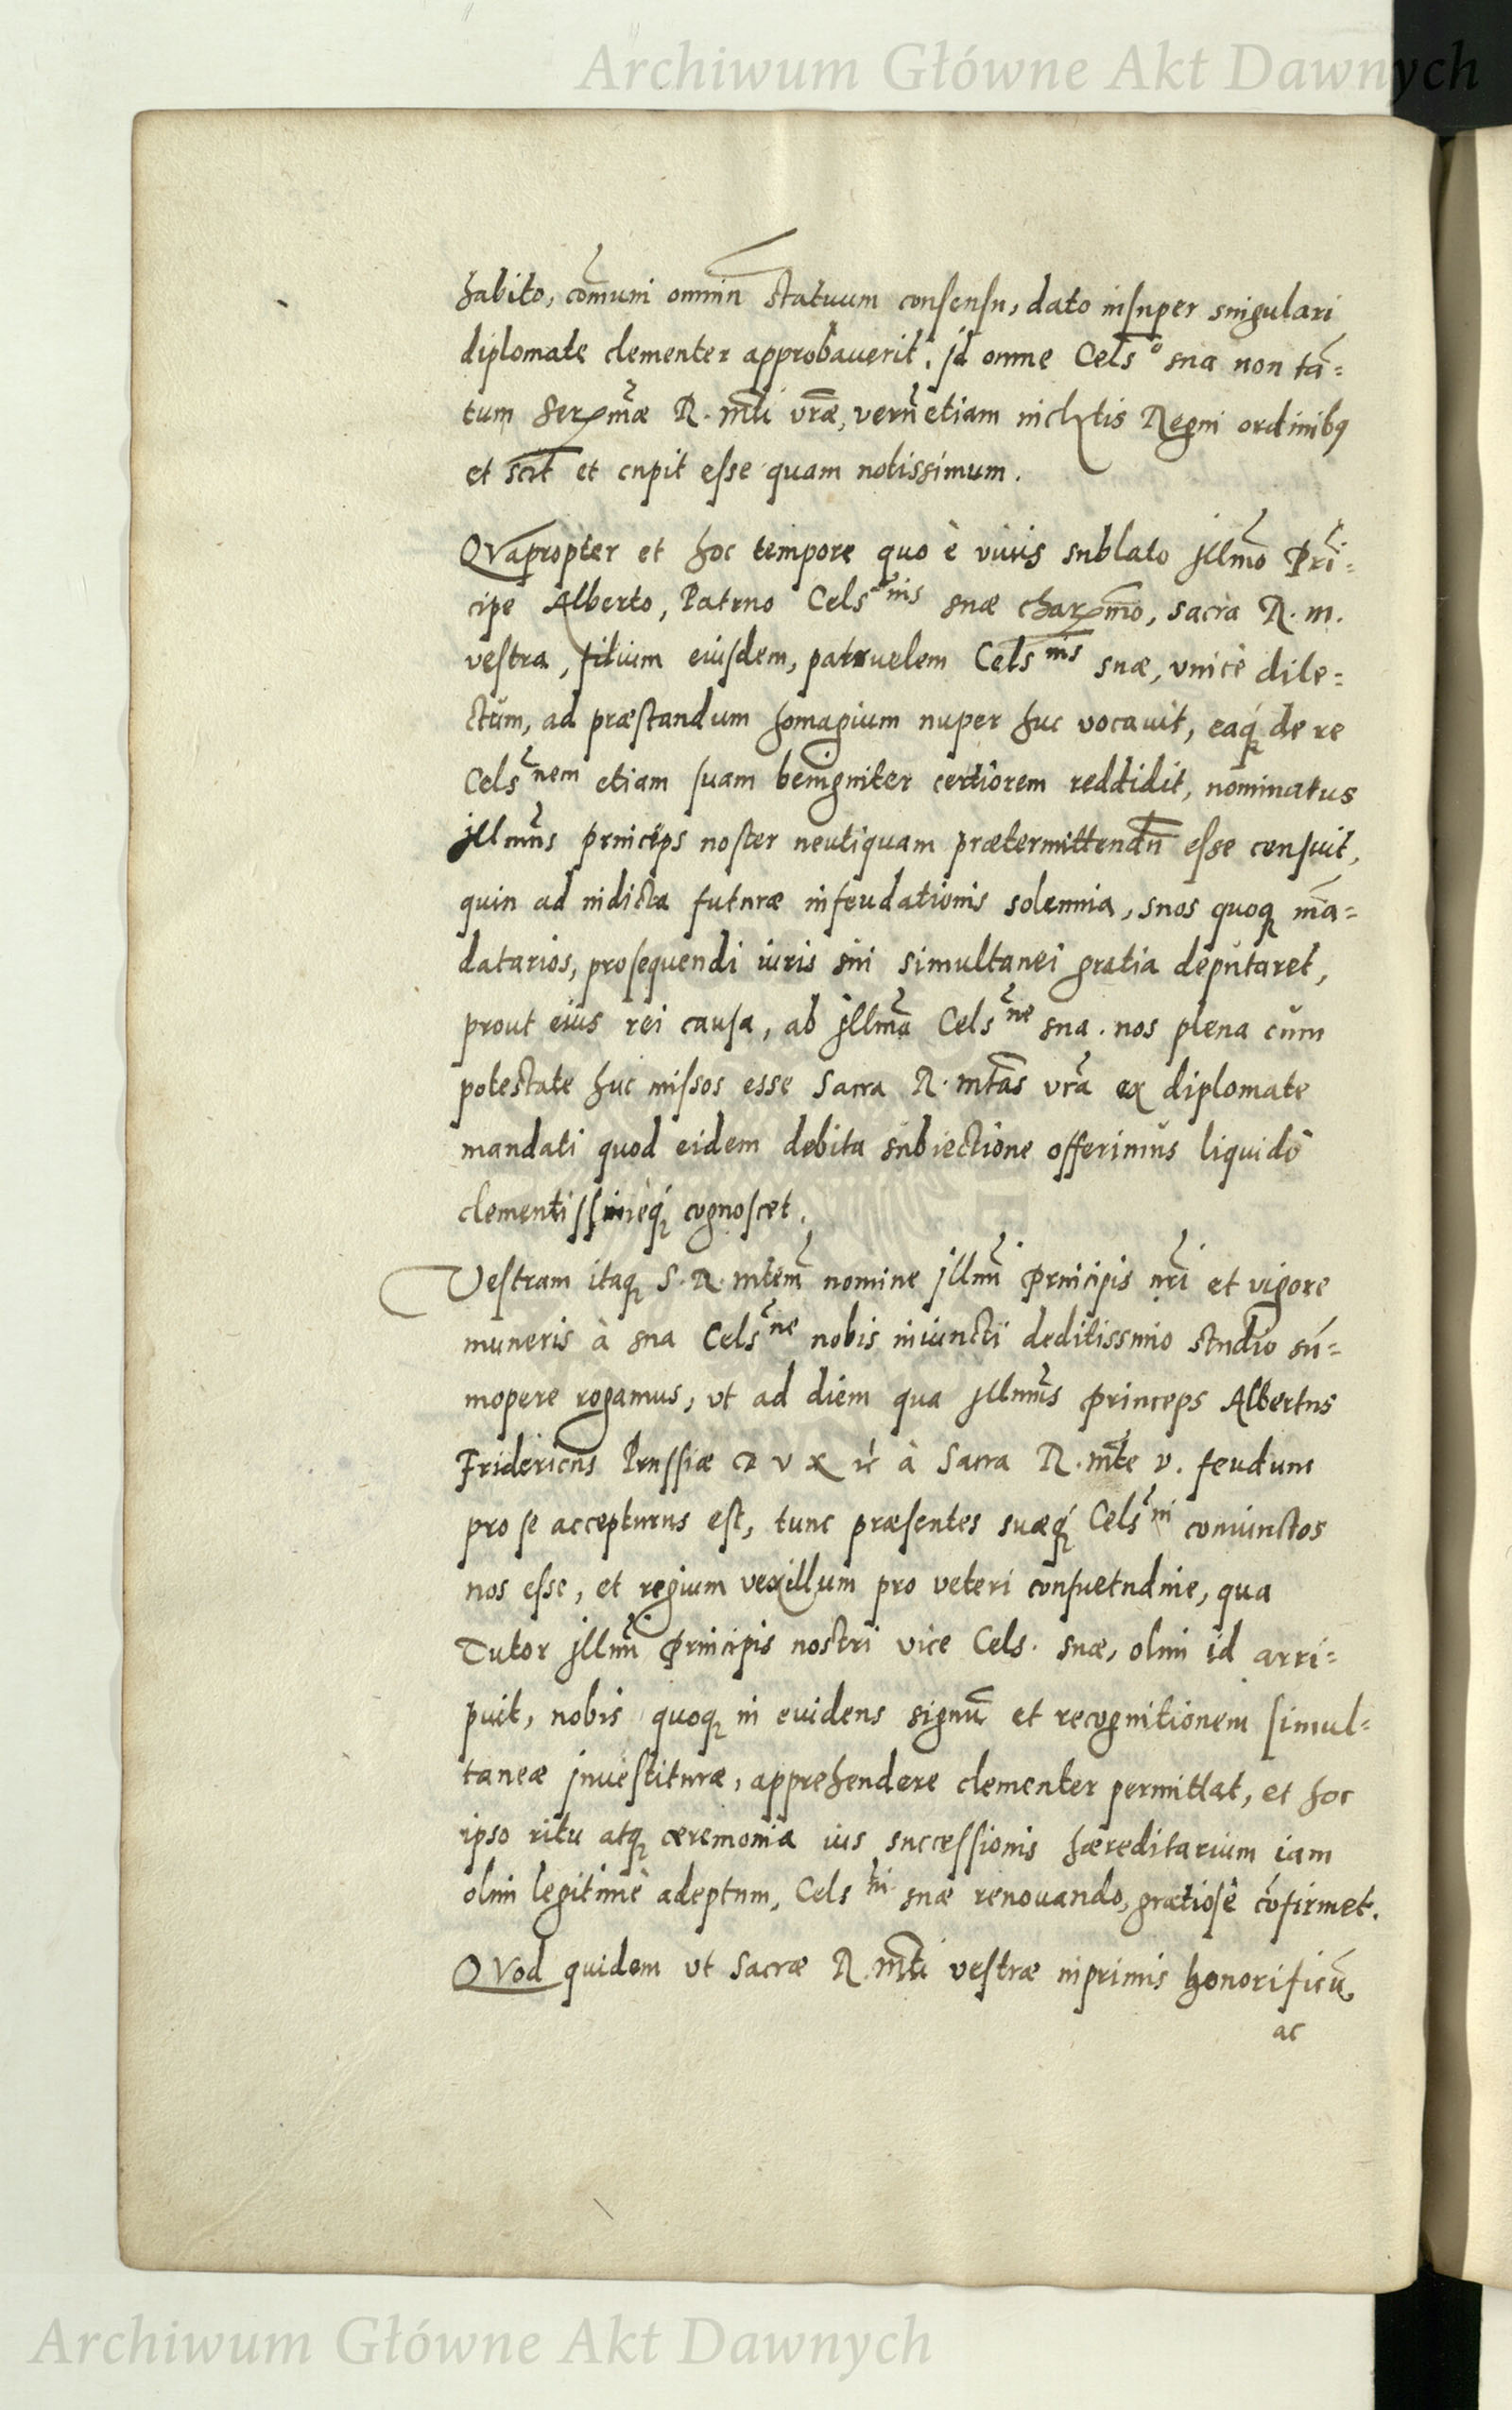 Archiwum Główne Akt Dawnych
habito, com̃uni omniũ statuum consensu, dato insuper singulari
diplomate clementer approbauerit. Jd omne Celsᵒ sua non tã=
tum Serᵐᵃᵉ R. Mti vr̃æ, verũ etiam inclytis Regni ordinibꝫ
et scit et cupit esse quam notissimum.
QVapropter et hoc tempore quo è viuis sublato Jllm̃o Prĩ=
cipe Alberto, Patruo Celsⁿⁱˢ suæ charm̃o, sacra R. M.
vestra, filium eiusdem, patruelem Celsⁿⁱˢ suæ, vnicè dile=
ctum, ad præstandum homagium nuper huc vocauit, eaq́ꝫ de re
Celsⁿᵉᵐ etiam suam benigniter certiorem reddidit, nominatus
Jllm̃us princeps noster neutiquam prætermittendũ esse censuit,
quin ad indicta futuræ infeudationis solennia, suos quoqꝫ mã=
datarios, prosequendi iuris sui simultanei gratia deputaret,
prout eius rei causa, ab Jllm̃a Celsⁿᵉ sua nos plena cum
potestate huc missos esse Sacra R. Mtas vr̃a ex diplomate
mandati quod eidem debita subiectione offerimus liquidò
clementissimeq́ꝫ cognoscet.
Vestram itaqꝫ S. R. Mtem nomine Jllm̃i Principis nr̃i et vigore
muneris à sua Celsⁿᵉ nobis iniuncti deditissimo studio sũ=
mopere rogamus, vt ad diem qua Jllm̃us Princeps Albertus
Fridericus Prussiæ DVX ꝛč à Sacra R. Mte v. feudum
pro se accepturus est, tunc præsentes suæq́ꝫ Celsⁿⁱ coniunctos
nos esse, et regium vexillum pro veteri consuetudine, qua
Tutor Jllm̃i Principis nostri vice Cels. suæ, olim id arri=
puit, nobis quoqꝫ in euidens signũ et recognitionem simul=
taneæ Jnuestituræ, apprehendere clementer permittat, et hoc
ipso ritu atqꝫ ceremonia ius successionis hæreditarium iam
olim legitimè adeptum, Celsⁿⁱ suæ renouando, gratiosè cõfirmet.
QVod quidem vt Sacræ R. Mti vestræ inprimis honorificũ
ac
Archiwum Główne Akt Dawnych